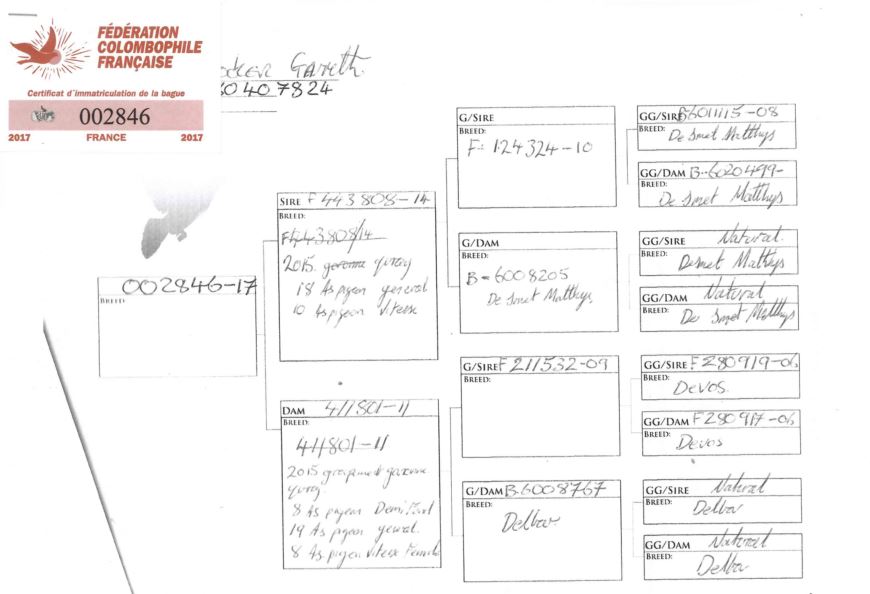 FÉDÉRATION
COLOMBOPHILE
FRANÇAISE
Certificat d'immatriculation de la bague
002846
2017 FRANCE 2017
Gareth
0407824
002846-17
BREED:
SIRE F 443808-14
BREED:
F443808/14
2015. garonne
18 As pigeon general
10 As pigeon Vitesse
DAM 411801-11
BREED:
411801-11
2015 groupement garonne
8 As pigeon Demi Fond
19 As pigeon general
8 As pigeon Vitesse Femelle
G/SIRE
BREED:
F-124324-10
G/DAM
BREED:
B-6008205
De Smet Matthys
G/SIRE F 211532-09
BREED:
G/DAM B.6008767
BREED:
Delbar
GG/SIRE B6011115-08
BREED:
De Smet Matthys
GG/DAM B-6020499-
BREED:
De Smet Matthys
GG/SIRE Natural.
BREED:
Desmet Matthys
GG/DAM Natural
BREED:
De Smet Matthys
GG/SIRE F 280919-06
BREED:
Devos.
GG/DAM F 280917-06
BREED:
Devos
GG/SIRE Natural
BREED:
Delbar
GG/DAM Natural
BREED:
Delbar